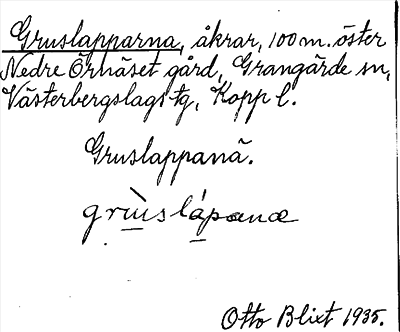 Gruslapparna, åkrar, 100 m. öster
Nedre Örnäset gård, Grangärde sn,
Västerbergslags tg, Kopp l.
Gruslappanä.
grùslápænæ
Otto Blixt 1935.